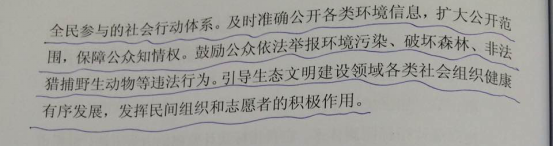 全民参与的社会行动体系。及时准确公开各类环境信息，扩大公开范
围，保障公众知情权。鼓励公众依法举报环境污染、破坏森林、非法
猎捕野生动物等违法行为。引导生态文明建设领域各类社会组织健康
有序发展，发挥民间组织和志愿者的积极作用。